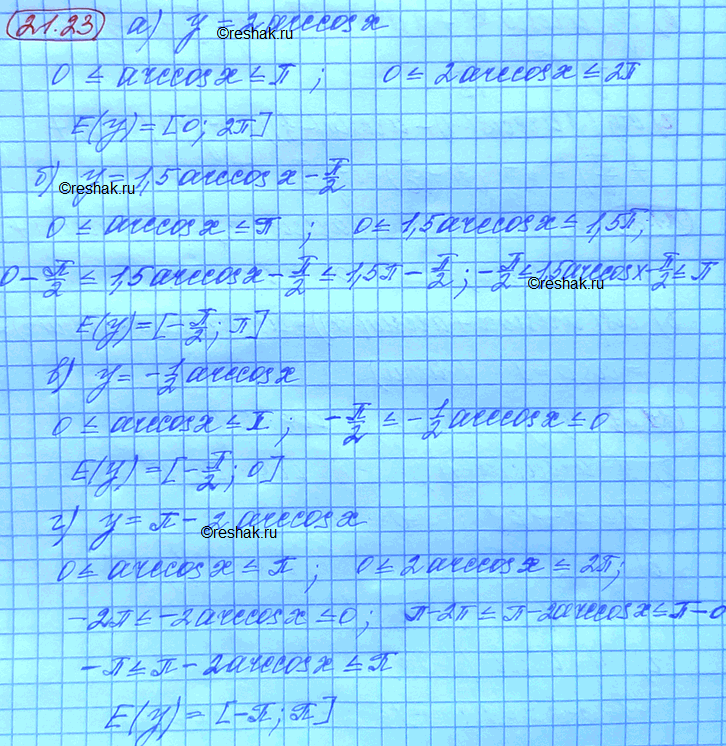 21.23 а) y = 2arccos x
©reshak.ru
0 ≤ arccos x ≤ π ; 0 ≤ 2arccos x ≤ 2π
E(y) = [0; 2π]
б) y = 1,5 arccos x - π/2
©reshak.ru
0 ≤ arccos x ≤ π ; 0 ≤ 1,5 arccos x ≤ 1,5π;
0 - π/2 ≤ 1,5 arccos x - π/2 ≤ 1,5π - π/2 ; -π/2 ≤ 1,5 arccos x - π/2 ≤ π
©reshak.ru
E(y) = [-π/2; π]
в) y = -1/2 arccos x
0 ≤ arccos x ≤ π ; -π/2 ≤ -1/2 arccos x ≤ 0
E(y) = [-π/2; 0]
г) y = π - 2 arccos x
©reshak.ru
0 ≤ arccos x ≤ π ; 0 ≤ 2 arccos x ≤ 2π;
-2π ≤ -2 arccos x ≤ 0; π-2π ≤ π-2arccos x ≤ π-0
-π ≤ π - 2arccos x ≤ π
E(y) = [-π; π]